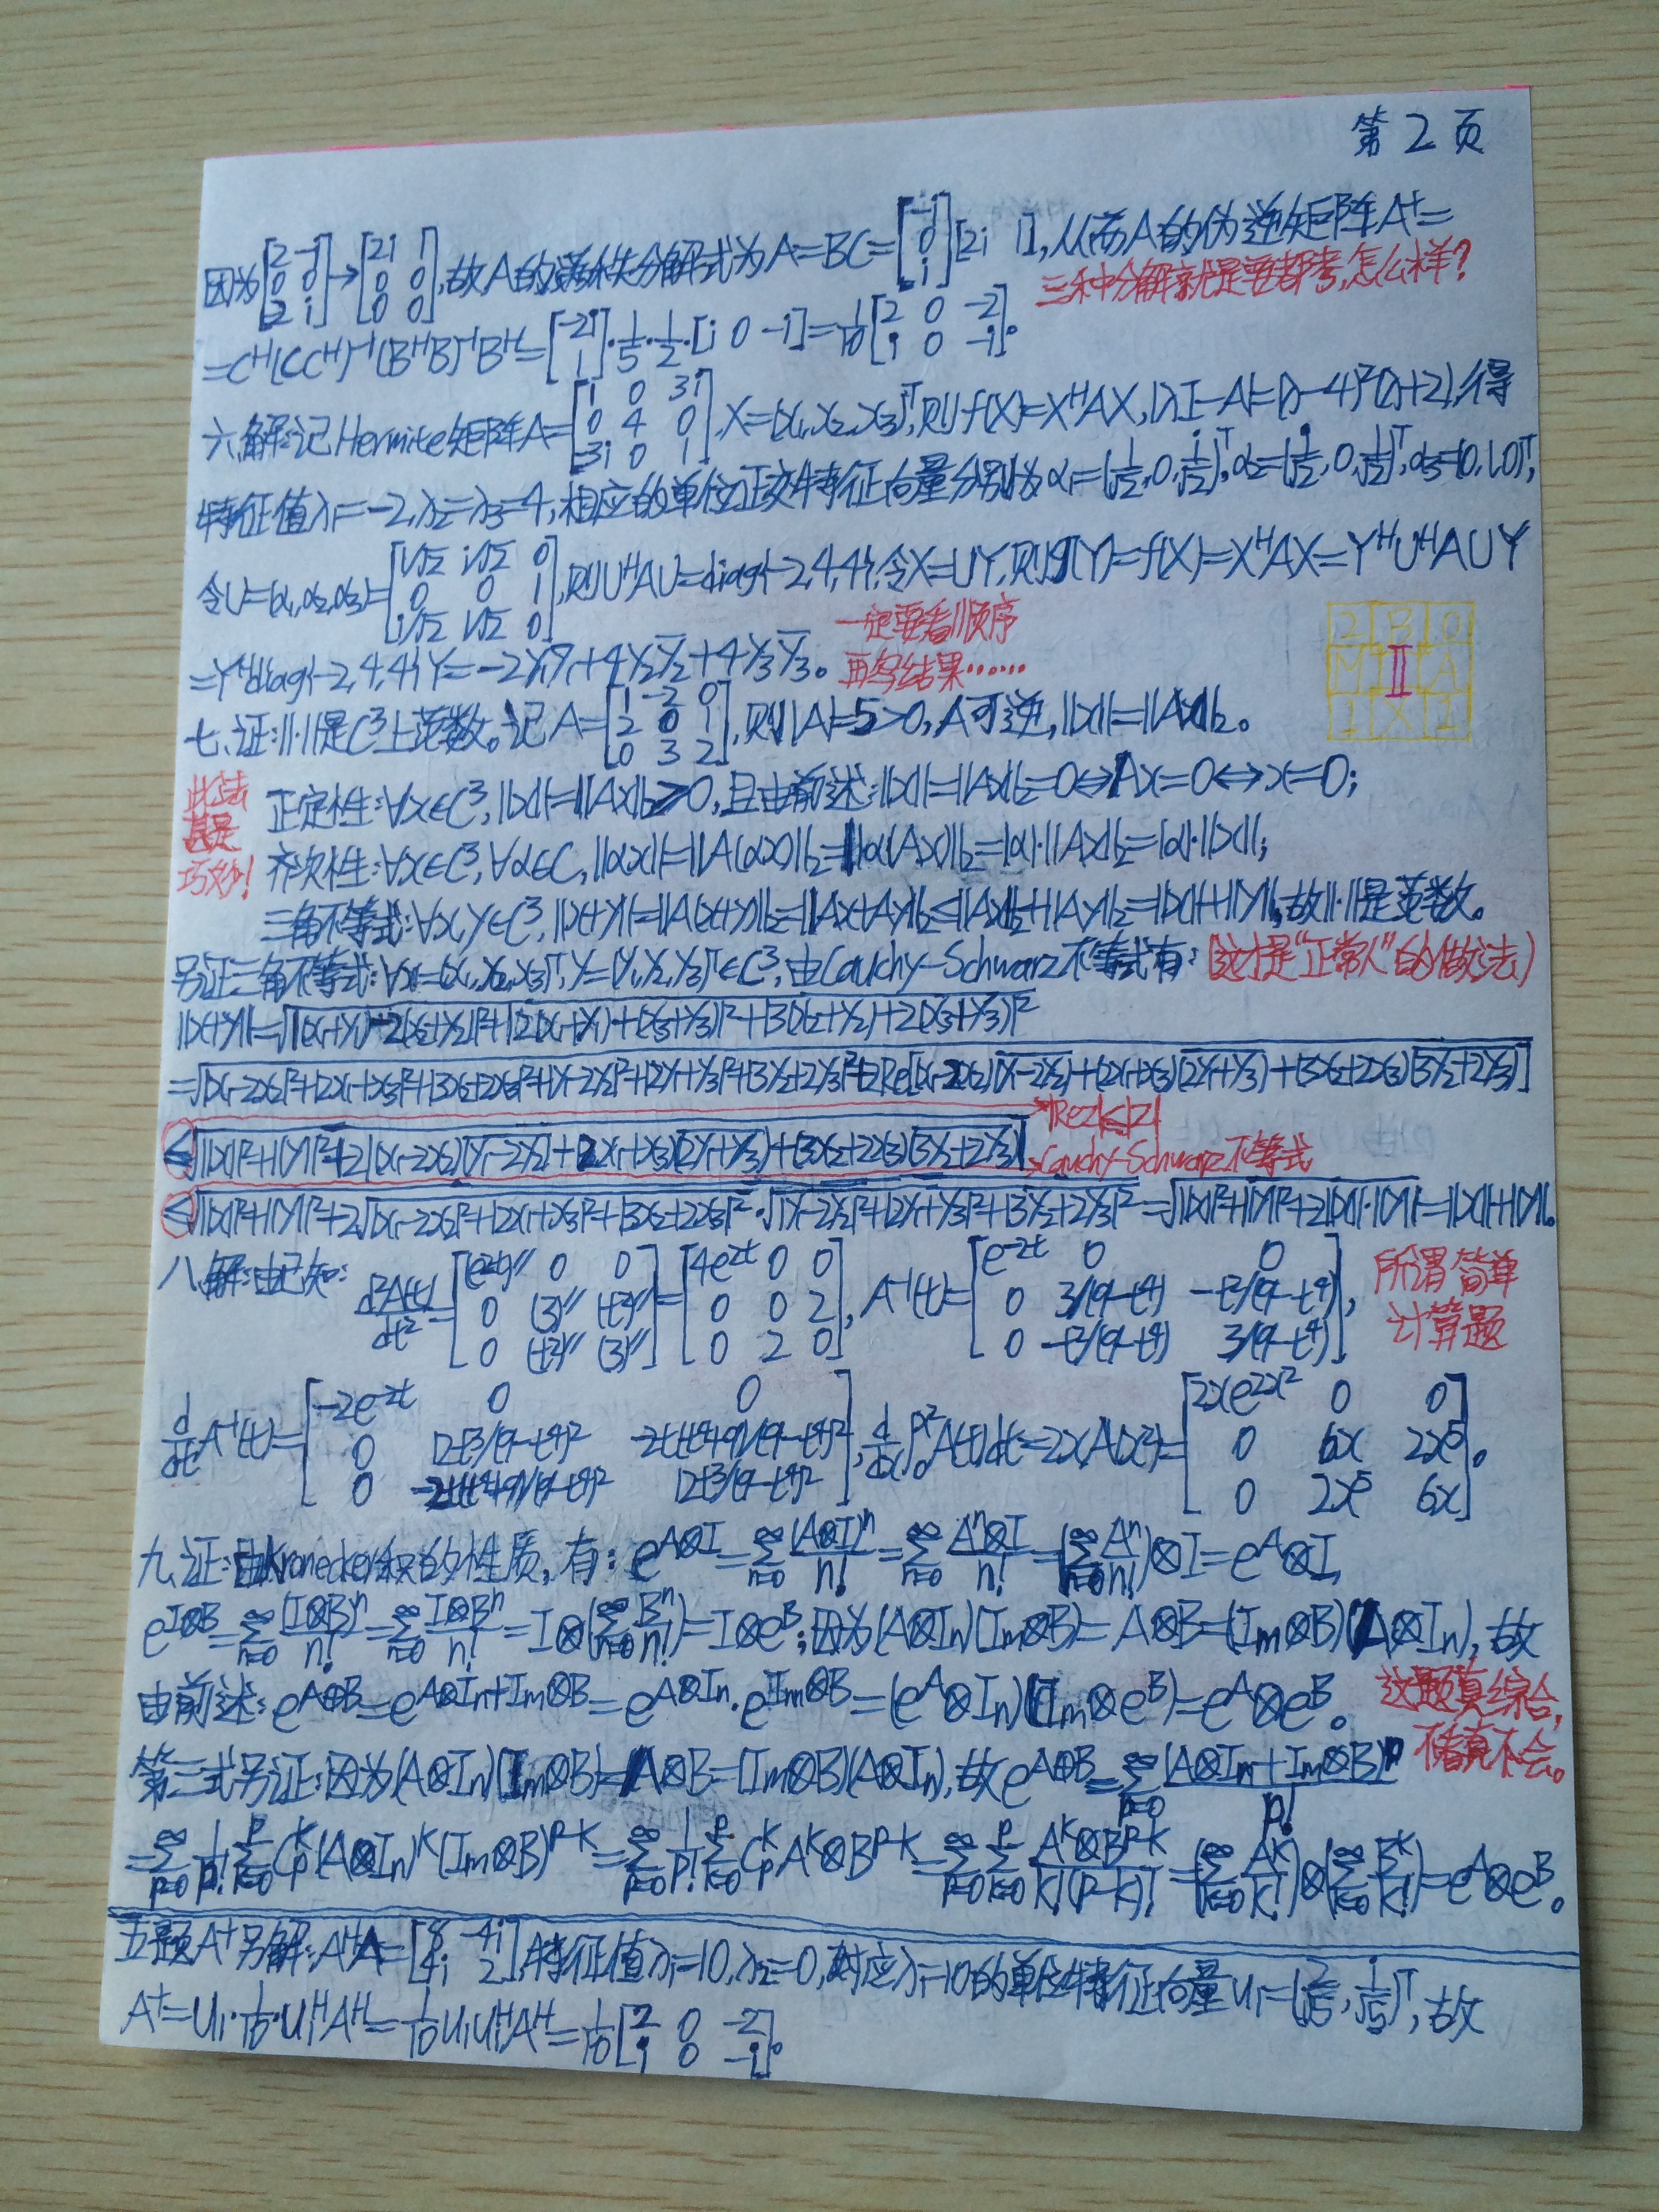 第2页
因为[2 -i; 0 0; 2 i]→[2i 1; 0 0; 0 0],故A的满秩分解式为A=BC=[-i; 0; i][2i 1],从而A的伪逆矩阵A⁺=
三种分解就是要都考,怎么样?
=Cᴴ(CCᴴ)⁻¹(BᴴB)⁻¹Bᴴ=[-2i; 1]·1/5·1/2·[i 0 -i]=1/10[2 0 -2; i 0 -i]。
六、解:记Hermite矩阵A=[1 0 3i; 0 4 0; -3i 0 1],X=(x₁,x₂,x₃)ᵀ,则f(X)=XᴴAX,|λI-A|=(λ-4)²(λ+2),得
特征值λ₁=-2,λ₂=λ₃=4,相应的单位正交特征向量分别为α₁=(1/√2,0,i/√2)ᵀ,α₂=(i/√2,0,1/√2)ᵀ,α₃=(0,1,0)ᵀ,
令U=(α₁,α₂,α₃)=[1/√2 i/√2 0; 0 0 1; i/√2 1/√2 0],则UᴴAU=diag{-2,4,4},令X=UY,则g(Y)=f(X)=XᴴAX=YᴴUᴴAUY
=Yᴴdiag{-2,4,4}Y=-2y₁ȳ₁+4y₂ȳ₂+4y₃ȳ₃。
一定要看顺序
再写结果……
2 B 0
M II A
1 X 1
七、证:||·||是C³上范数。记A=[1 -2 0; 2 0 1; 0 3 2],则|A|=5>0,A可逆,||x||=||Ax||₂。
此法
甚是
巧妙!
正定性:∀x∈C³,||x||=||Ax||₂≥0,且由前述:||x||=||Ax||₂=0⇔Ax=0⇔x=0;
齐次性:∀x∈C³,∀α∈C,||αx||=||A(αx)||₂=||α(Ax)||₂=|α|·||Ax||₂=|α|·||x||;
三角不等式:∀x,y∈C³,||x+y||=||A(x+y)||₂=||Ax+Ay||₂≤||Ax||₂+||Ay||₂=||x||+||y||,故||·||是范数。
另证三角不等式:∀x=(x₁,x₂,x₃)ᵀ,y=(y₁,y₂,y₃)ᵀ∈C³,由Cauchy-Schwarz不等式有:(这才是“正常人”的做法)
||x+y||=√(|(x₁+y₁)-2(x₂+y₂)|²+|2(x₁+y₁)+(x₃+y₃)|²+|3(x₂+y₂)+2(x₃+y₃)|²)
=√(|x₁-2x₂|²+|2x₁+x₃|²+|3x₂+2x₃|²+|y₁-2y₂|²+|2y₁+y₃|²+|3y₂+2y₃|²+2Re[(x₁-2x₂)(y₁-2y₂)‾+(2x₁+x₃)(2y₁+y₃)‾+(3x₂+2x₃)(3y₂+2y₃)‾])
≤√(||x||²+||y||²+2|(x₁-2x₂)(y₁-2y₂)‾+(2x₁+x₃)(2y₁+y₃)‾+(3x₂+2x₃)(3y₂+2y₃)‾|)
|Rez|≤|z|
Cauchy-Schwarz不等式
≤√(||x||²+||y||²+2√(|x₁-2x₂|²+|2x₁+x₃|²+|3x₂+2x₃|²)·√(|y₁-2y₂|²+|2y₁+y₃|²+|3y₂+2y₃|²))=√(||x||²+||y||²+2||x||·||y||)=||x||+||y||。
八、解:由已知:d²A(t)/dt²=[(e²ᵗ)″ 0 0; 0 (3)″ (t²)″; 0 (t²)″ (3)″]=[4e²ᵗ 0 0; 0 0 2; 0 2 0],A⁻¹(t)=[e⁻²ᵗ 0 0; 0 3/(9-t⁴) -t²/(9-t⁴); 0 -t²/(9-t⁴) 3/(9-t⁴)],
所谓简单
计算题
d/dt A⁻¹(t)=[-2e⁻²ᵗ 0 0; 0 12t³/(9-t⁴)² -2t(t⁴+9)/(9-t⁴)²; 0 -2t(t⁴+9)/(9-t⁴)² 12t³/(9-t⁴)²],d/dx∫₀^(x²)A(t)dt=2xA(x²)=[2xe^(2x²) 0 0; 0 6x 2x⁵; 0 2x⁵ 6x]。
九、证:由Kronecker积的性质,有:e^(A⊗I)=∑_(n=0)^∞ (A⊗I)ⁿ/n!=∑_(n=0)^∞ Aⁿ⊗I/n!=(∑_(n=0)^∞ Aⁿ/n!)⊗I=e^A⊗I,
e^(I⊗B)=∑_(n=0)^∞ (I⊗B)ⁿ/n!=∑_(n=0)^∞ I⊗Bⁿ/n!=I⊗(∑_(n=0)^∞ Bⁿ/n!)=I⊗e^B;因为(A⊗Iₙ)(Iₘ⊗B)=A⊗B=(Iₘ⊗B)(A⊗Iₙ),故
由前述:e^(A⊕B)=e^(A⊗Iₙ+Iₘ⊗B)=e^(A⊗Iₙ)·e^(Iₘ⊗B)=(e^A⊗Iₙ)(Iₘ⊗e^B)=e^A⊗e^B。
这题真综合,
不看真不会。
第三式另证:因为(A⊗Iₙ)(Iₘ⊗B)=A⊗B=(Iₘ⊗B)(A⊗Iₙ),故e^(A⊕B)=∑_(p=0)^∞ (A⊗Iₙ+Iₘ⊗B)ᵖ/p!
=∑_(p=0)^∞ 1/p! ∑_(k=0)^p C_p^k(A⊗Iₙ)^k(Iₘ⊗B)^(p-k)=∑_(p=0)^∞ 1/p! ∑_(k=0)^p C_p^k A^k⊗B^(p-k)=∑_(p=0)^∞∑_(k=0)^p A^k⊗B^(p-k)/k!(p-k)!=(∑_(k=0)^∞ A^k/k!)⊗(∑_(k=0)^∞ B^k/k!)=e^A⊗e^B。
五题A⁺另解:AᴴA=[8 -4i; 4i 2],特征值λ₁=10,λ₂=0,对应λ₁=10的单位特征向量u₁=(2/√5,i/√5)ᵀ,故
A⁺=u₁·1/10·u₁ᴴAᴴ=1/10u₁u₁ᴴAᴴ=1/10[2 0 -2; i 0 -i]。